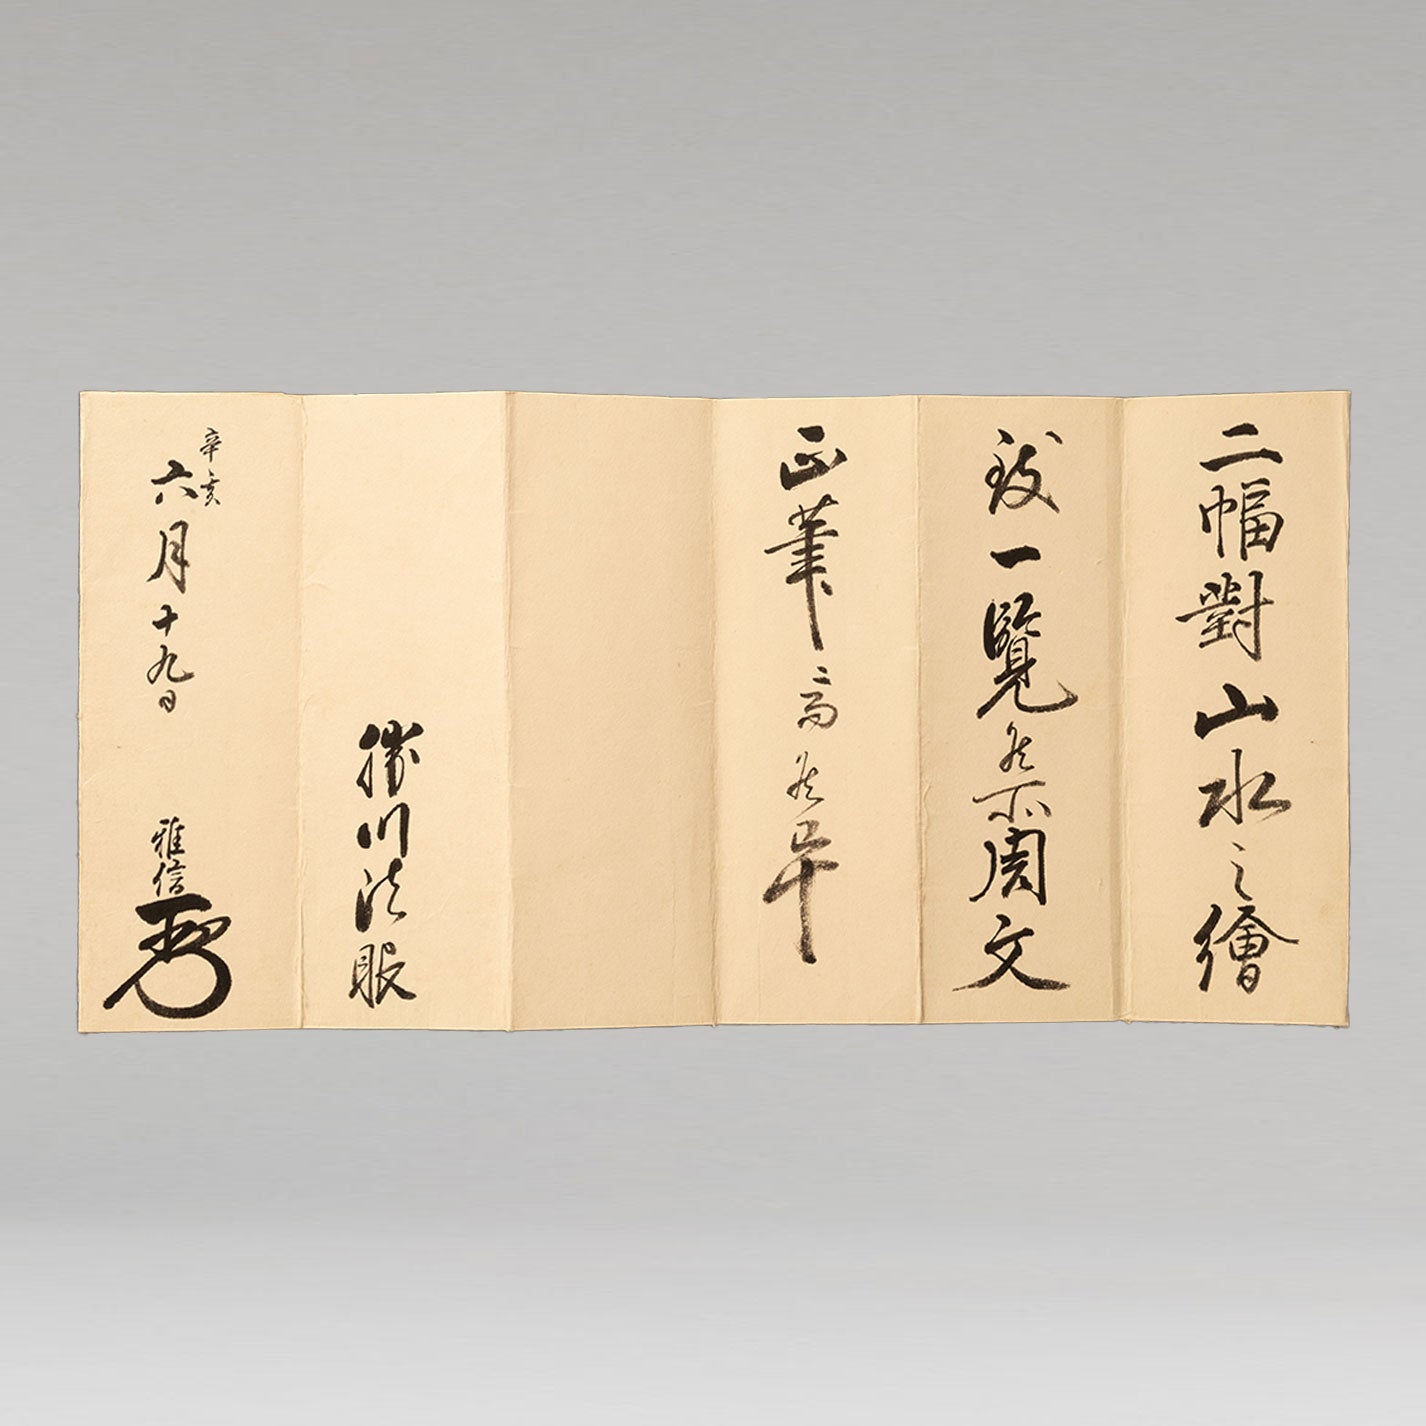 二幅對山水之繪
致一覽候所周文
正筆ニ而候
勝川法眼
辛亥
六月十九日
雅信